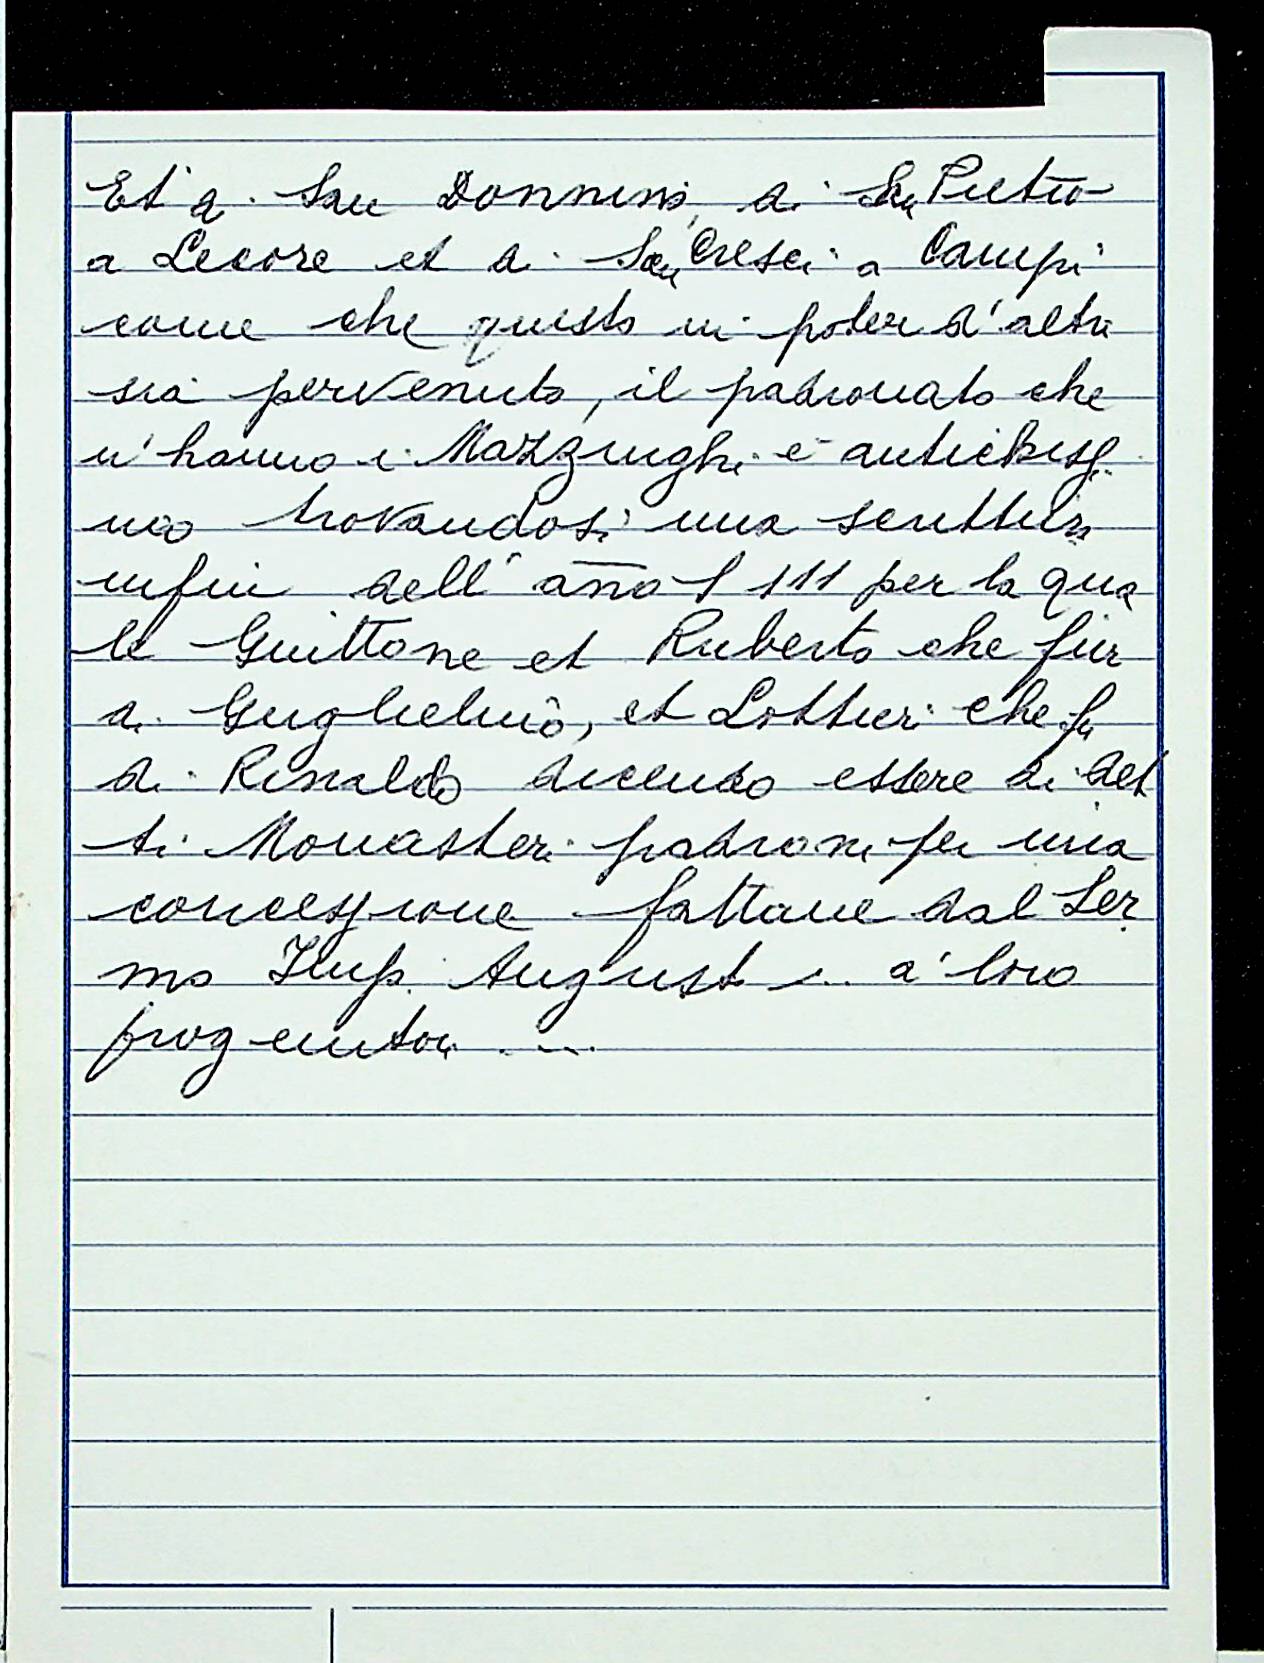 Et a San Donnino, di San Pietro
a Lecore et di San Cresci a Campi
come che questo in poter d'altri
sia pervenuto, il padronato che
n'hanno i Mazzinghi è antichissi
mo trovandosi una scrittura
infin dell'año 1111 per la qua
le Guittone et Ruberto che fur
di Guglielmo, et Lottieri che fu
di Rinaldo dicendo essere di det
ti Monasteri padroni per una
concessione fattane dal Ser
mo Imp. August... a' loro
progenitori ....